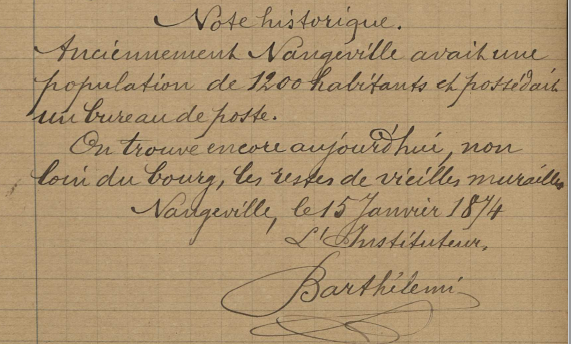 Note historique.
Anciennement Nangeville avait une
population de 1200 habitants et possédait
un bureau de poste.
On trouve encore aujourd'hui, non
loin du bourg, les restes de vieilles murailles
Nangeville, le 15 Janvier 1874
L'Instituteur,
Barthélemi